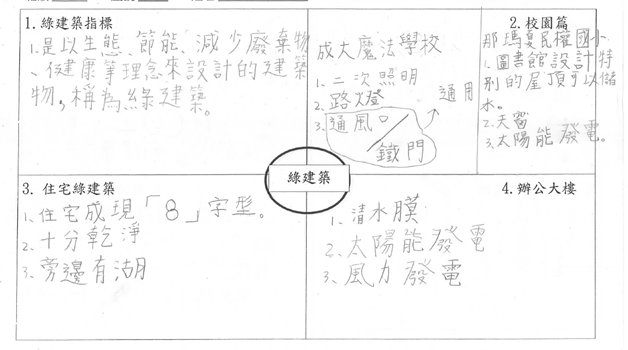 1. 綠建築指標
1.是以生態、節能、減少廢棄物
、健康等理念來設計的建築
物,稱為綠建築。
2. 校園篇
成大魔法學校
1.二次照明
2.路燈
3.通風口
鐵門
通用
那瑪夏民權國小
1.圖書館設計特
別的屋頂可以儲
水。
2.天窗
3.太陽能發電。
綠建築
3. 住宅綠建築
1.住宅成現「8」字型。
2.十分乾淨
3.旁邊有湖
4. 辦公大樓
1.清水膜
2.太陽能發電
3.風力發電